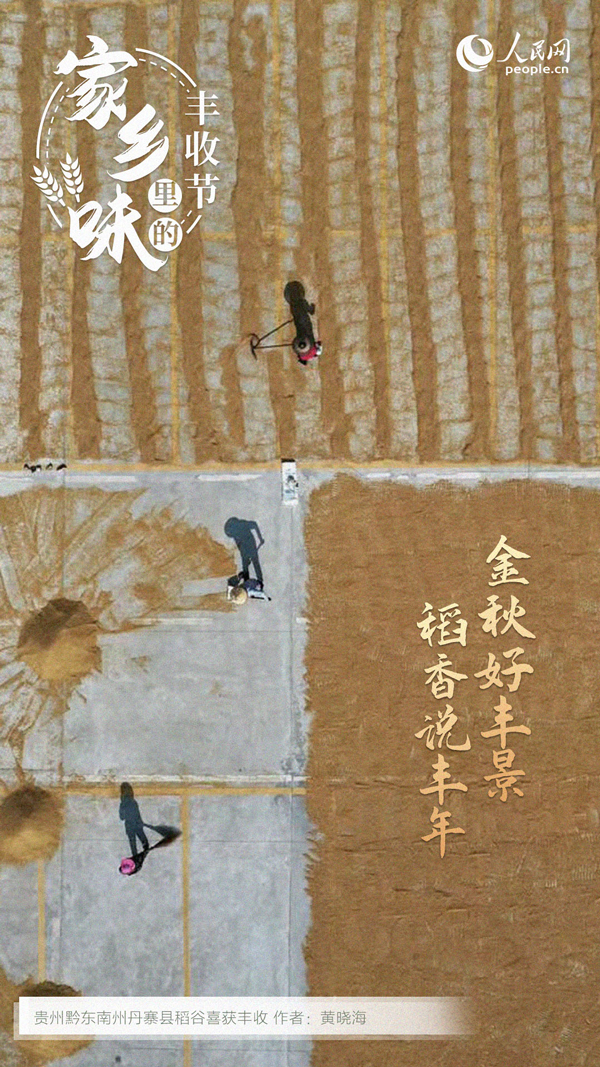 家乡味
里的
丰收节
人民网
people.cn
金秋好丰景
稻香说丰年
贵州黔东南州丹寨县稻谷喜获丰收 作者：黄晓海